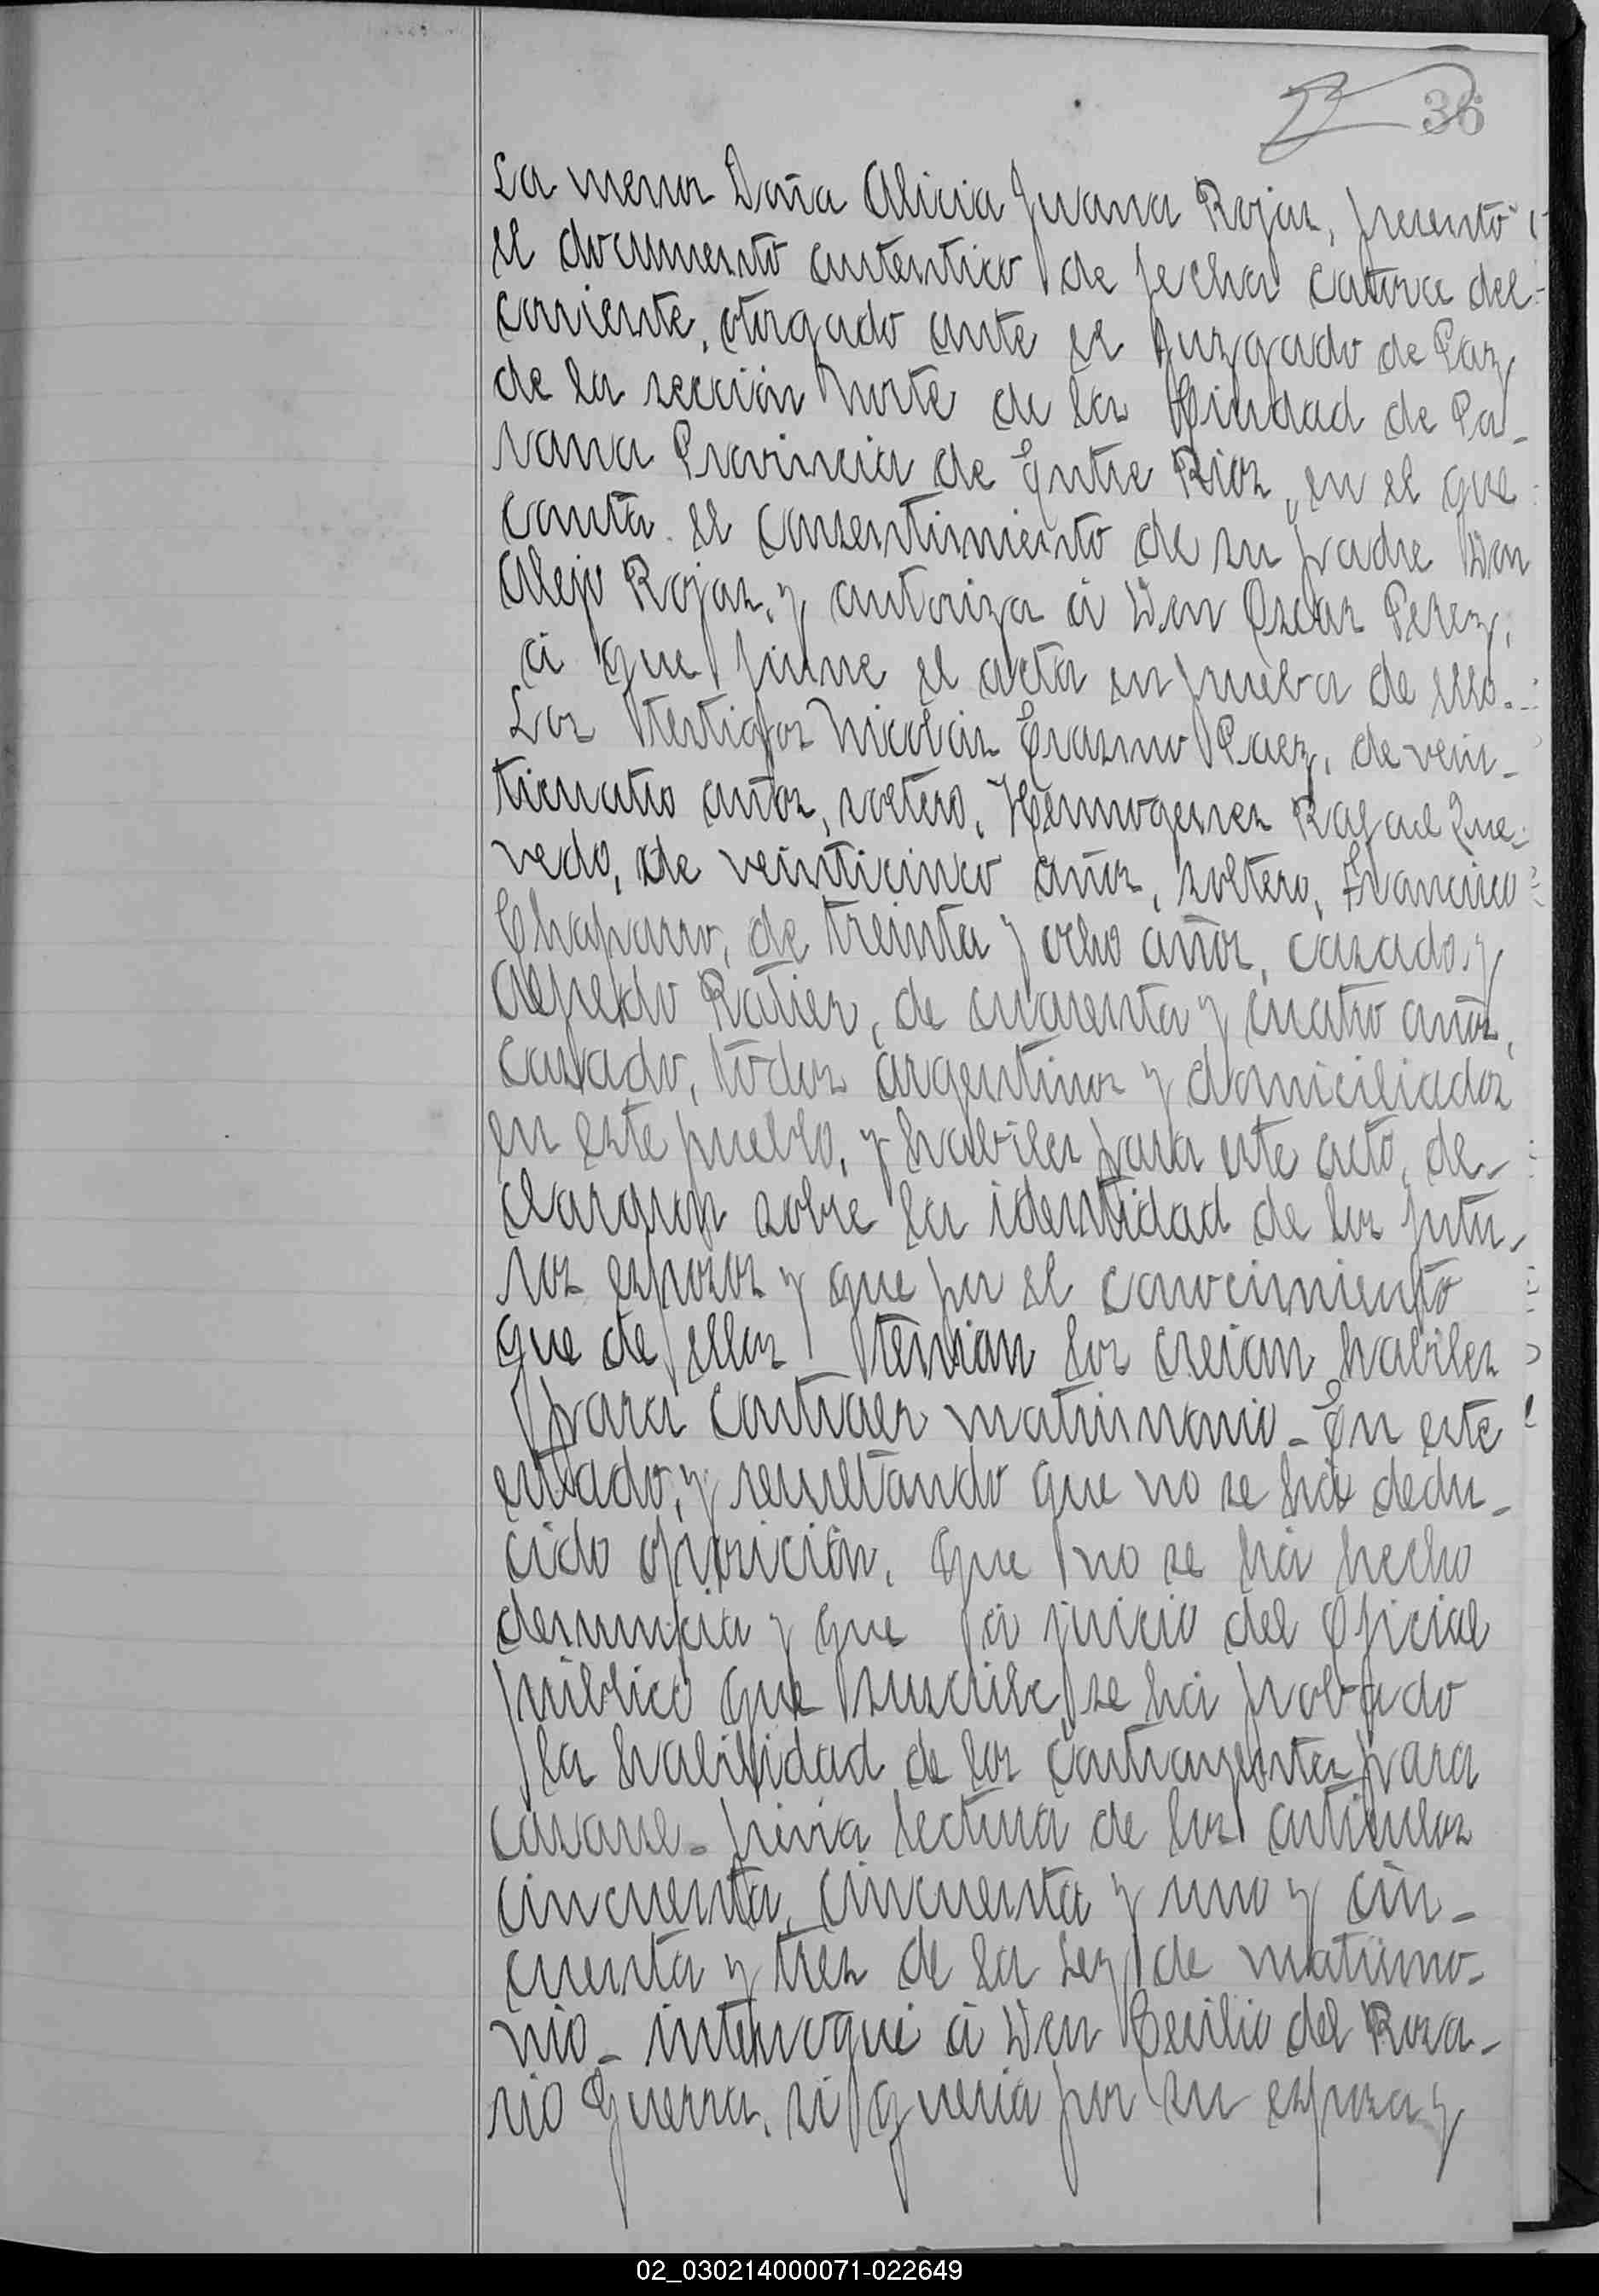 36
La menor Doña Alicia Juana Rojas, presentó
el documento autentico de fecha catorce del
corriente, otorgado ante el Juzgado de Paz
de la sección Norte de la Ciudad de Pa-
rana Provincia de Entre Rios, en el que
consta el consentimiento de su padre Don
Alejo Rojas, y autoriza á Don Oscar Perez,
á que firme el acta en prueba de ello.-
Los testigos Nicolás Erasmo Paez, de vein-
ticuatro años, soltero, Hermogenes Rafael Que-
vedo, de veinticinco años, soltero, Francisco
Chaparro, de treinta y ocho años, casado y
Alfredo Ratier, de cuarenta y cuatro años,
casado, todos argentinos y domiciliados
en este pueblo, y habiles para este acto, de-
clararon sobre la identidad de los futu-
ros esposos y que por el conocimiento
que de ellos tenian los creian habiles
para contraer matrimonio - En este
estado, y resultando que no se há dedu-
cido oposición, que no se há hecho
denuncia y que á juicio del Oficial
público que suscribe, se há probado
la habilidad de los contrayentes para
casarse - previa lectura de los articulos
cincuenta, cincuenta y uno y cin-
cuenta y tres de la Ley de matrimo-
nio - interrogué á Don Cecilio del Rosa-
rio Guerra, si queria por su esposa y
02_030214000071-022649